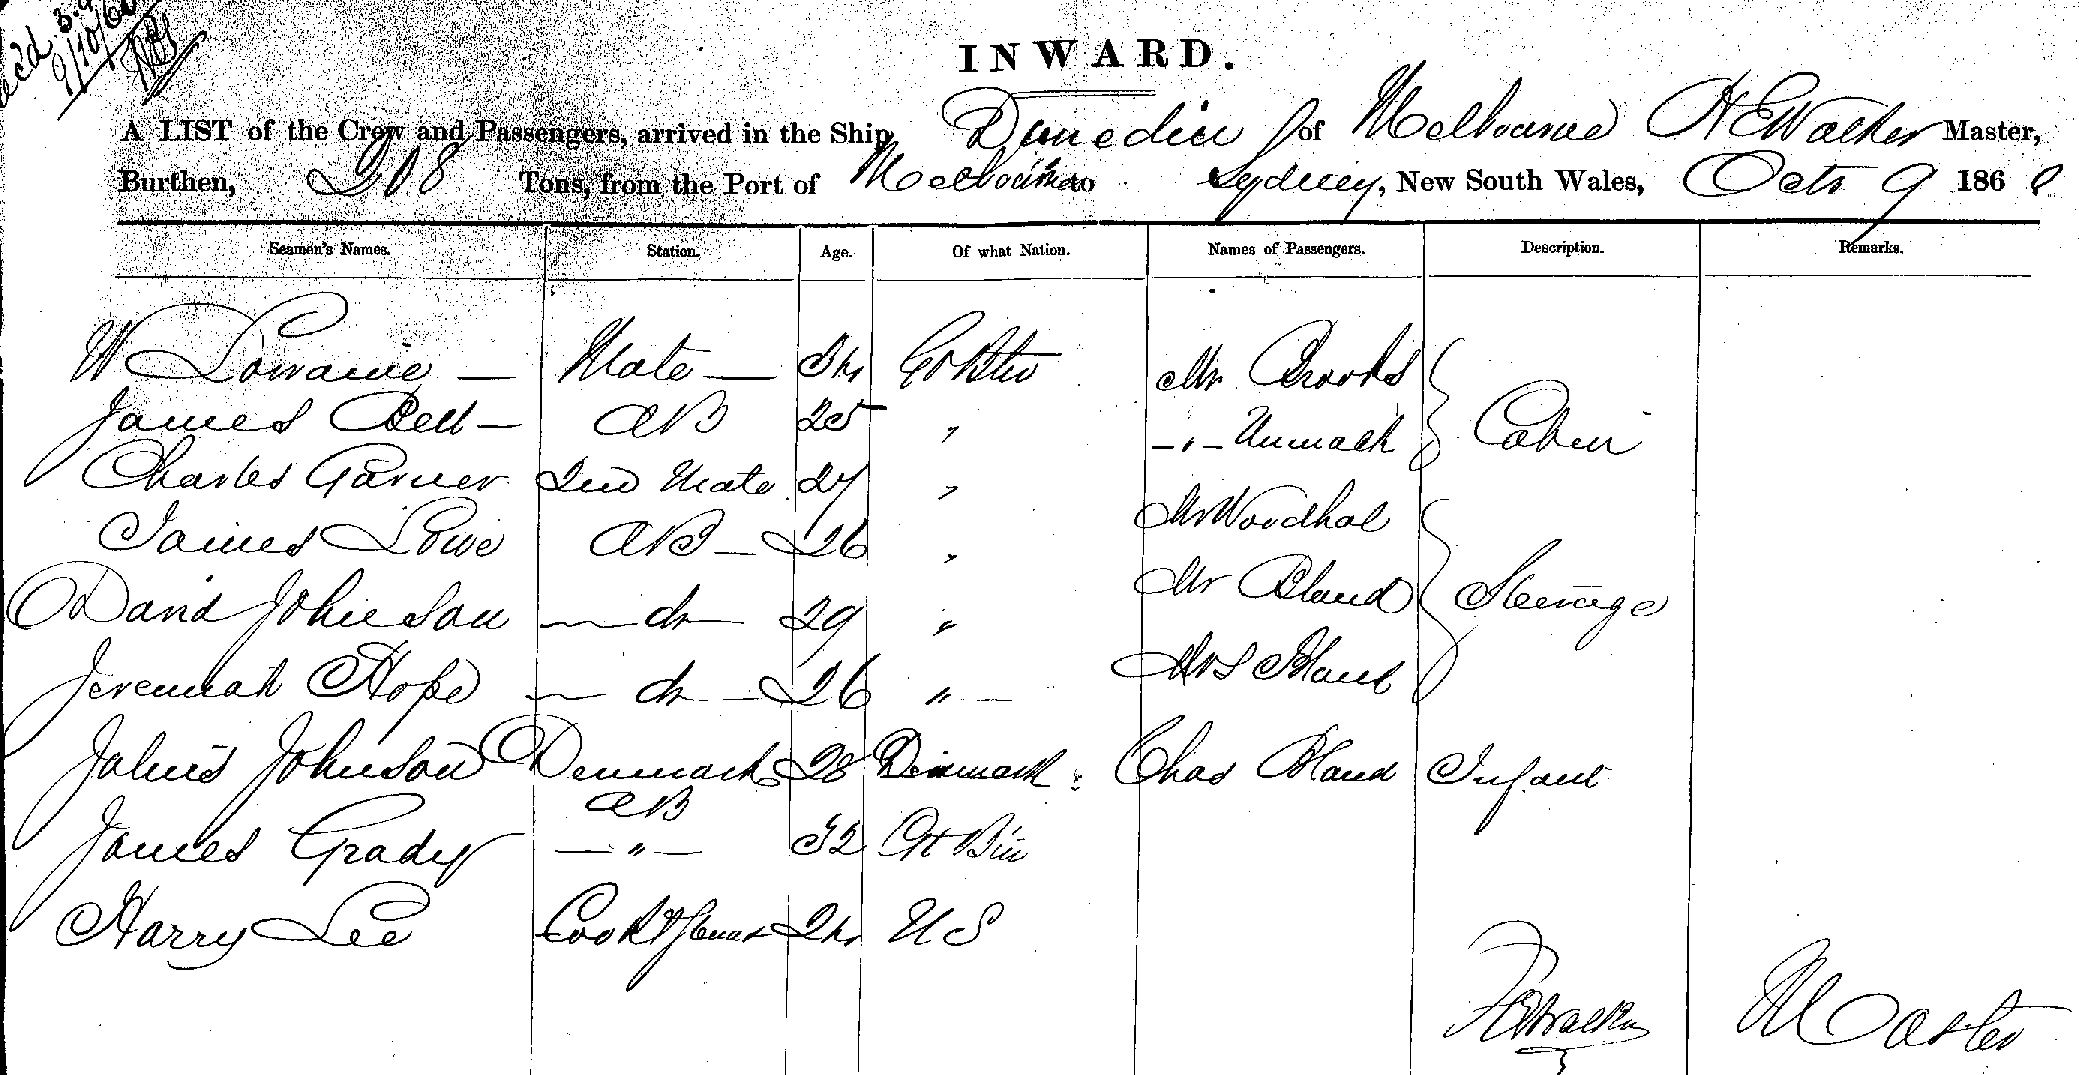 INWARD.
A LIST of the Crew and Passengers, arrived in the Ship Dunedin of Melbourne H E Walker Master,
Burthen, 208 Tons, from the Port of Melbourne Sydney, New South Wales, Octr 9 186
Seamen's Names. Station. Age. Of what Nation. Names of Passengers. Description. Remarks.
W Lorraine — Mate — Gt Btn Mr Brooks
James Bell — AB 25 " — " — Unmack Cabin
Charles Garner 2nd Mate 27 "
Mr Woodhal
James Lowe AB — 26 "
Mr Bland Steerage
David Johnson — do — 29 "
Jeremiah Hope — do — 26 " — Mrs Bland
Julius Johnson Denmark 28 Denmark Chas Bland Infant
AB
James Grady — " — 32 Gt Btn
Harry Lee Cook & Steward U S
H E Walker Master